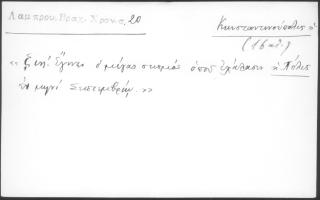 Λαμπρου. Βραχ. Χρονικ. 20
Κωνσταντινούπολις ἡ
(16 αἰ.)
« ζιή! ἔγινεν ὁ μέγας σεισμός ὁποῦ ἐχάλασεν ἡ Πόλις
ἐν μηνί Σεπτεμβρίῳ. »